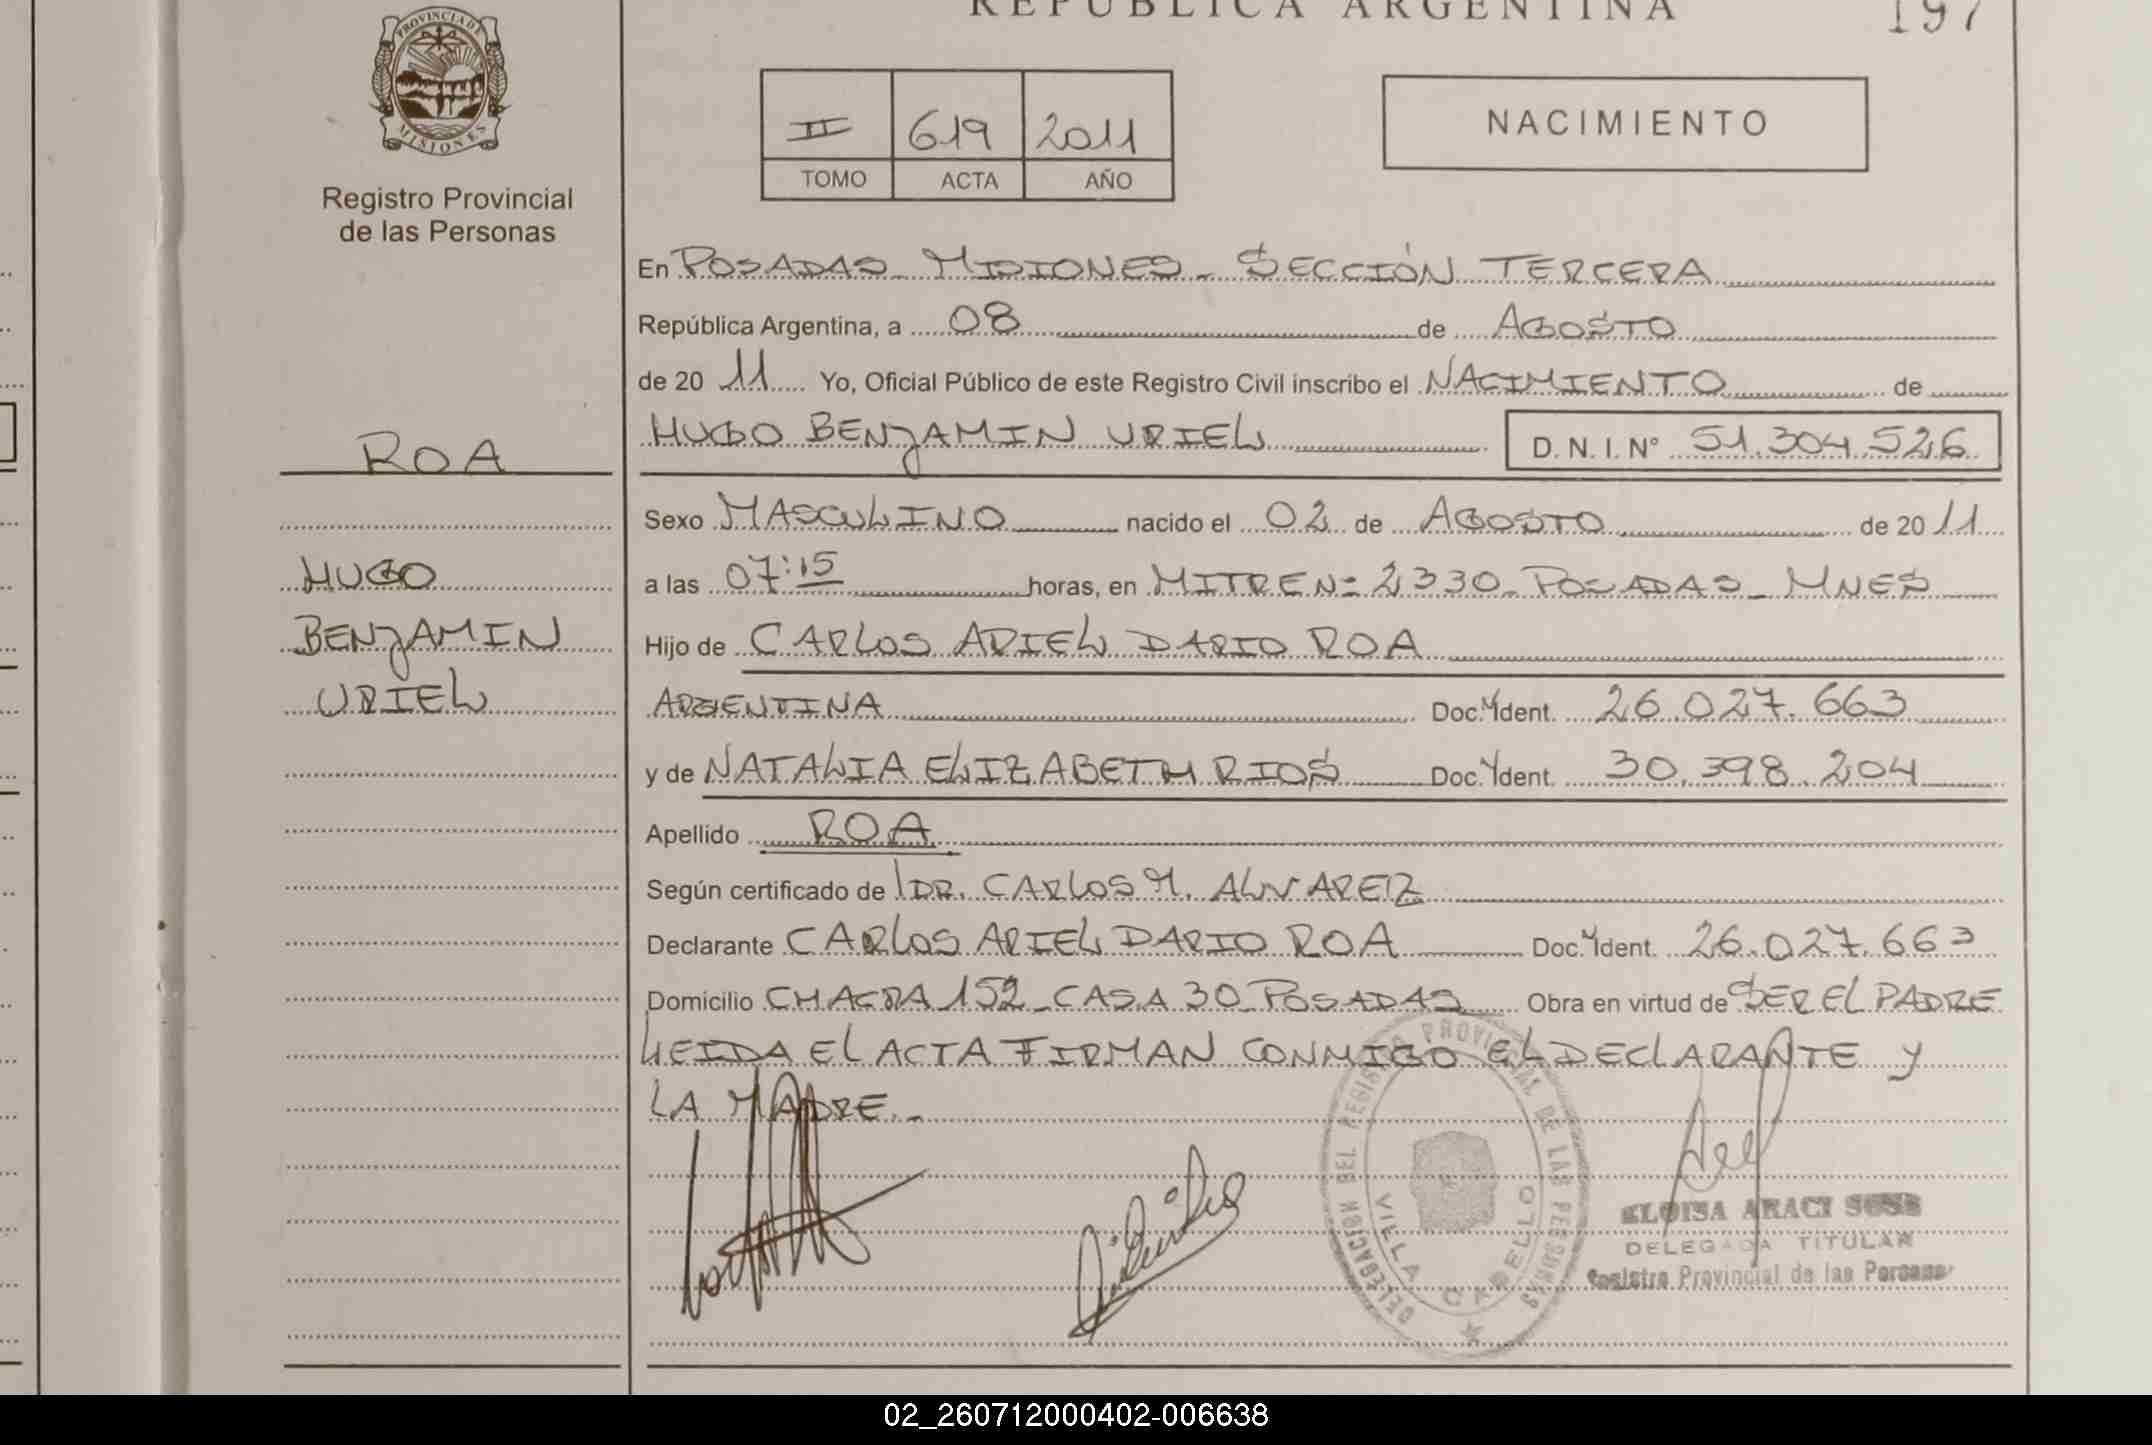 REPUBLICA ARGENTINA
197
PROVINCIA DE MISIONES
Registro Provincial
de las Personas
II 619 2011
TOMO ACTA AÑO
NACIMIENTO
En POSADAS - MISIONES - SECCIÓN TERCERA
República Argentina, a 08 de AGOSTO
de 20 11 Yo, Oficial Público de este Registro Civil inscribo el NACIMIENTO de
HUGO BENJAMIN URIEL D. N. I. N° 51.304.526
ROA
Sexo MASCULINO nacido el 02 de AGOSTO de 20 11
HUGO
a las 07:15 horas, en MITRE N= 2330 - POSADAS - MNES
BENJAMIN
Hijo de CARLOS ARIEL DARIO ROA
URIEL
ARGENTINA Doc. Ident. 26.027.663
y de NATALIA ELIZABETH RIOS Doc. Ident. 30.398.204
Apellido ROA
Según certificado de DR. CARLOS M. ALVAREZ
Declarante CARLOS ARIEL DARIO ROA Doc. Ident. 26.027.663
Domicilio CHACRA 152 - CASA 30 - POSADAS Obra en virtud de SER EL PADRE
LEIDA EL ACTA FIRMAN CONMIGO EL DECLARANTE Y
LA MADRE.-
DELEGACION DEL REGISTRO PROVINCIAL DE LAS PERSONAS
VILLA CABELLO
ELOISA ARACI SOSA
DELEGADA TITULAR
Registro Provincial de las Personas
02_260712000402-006638